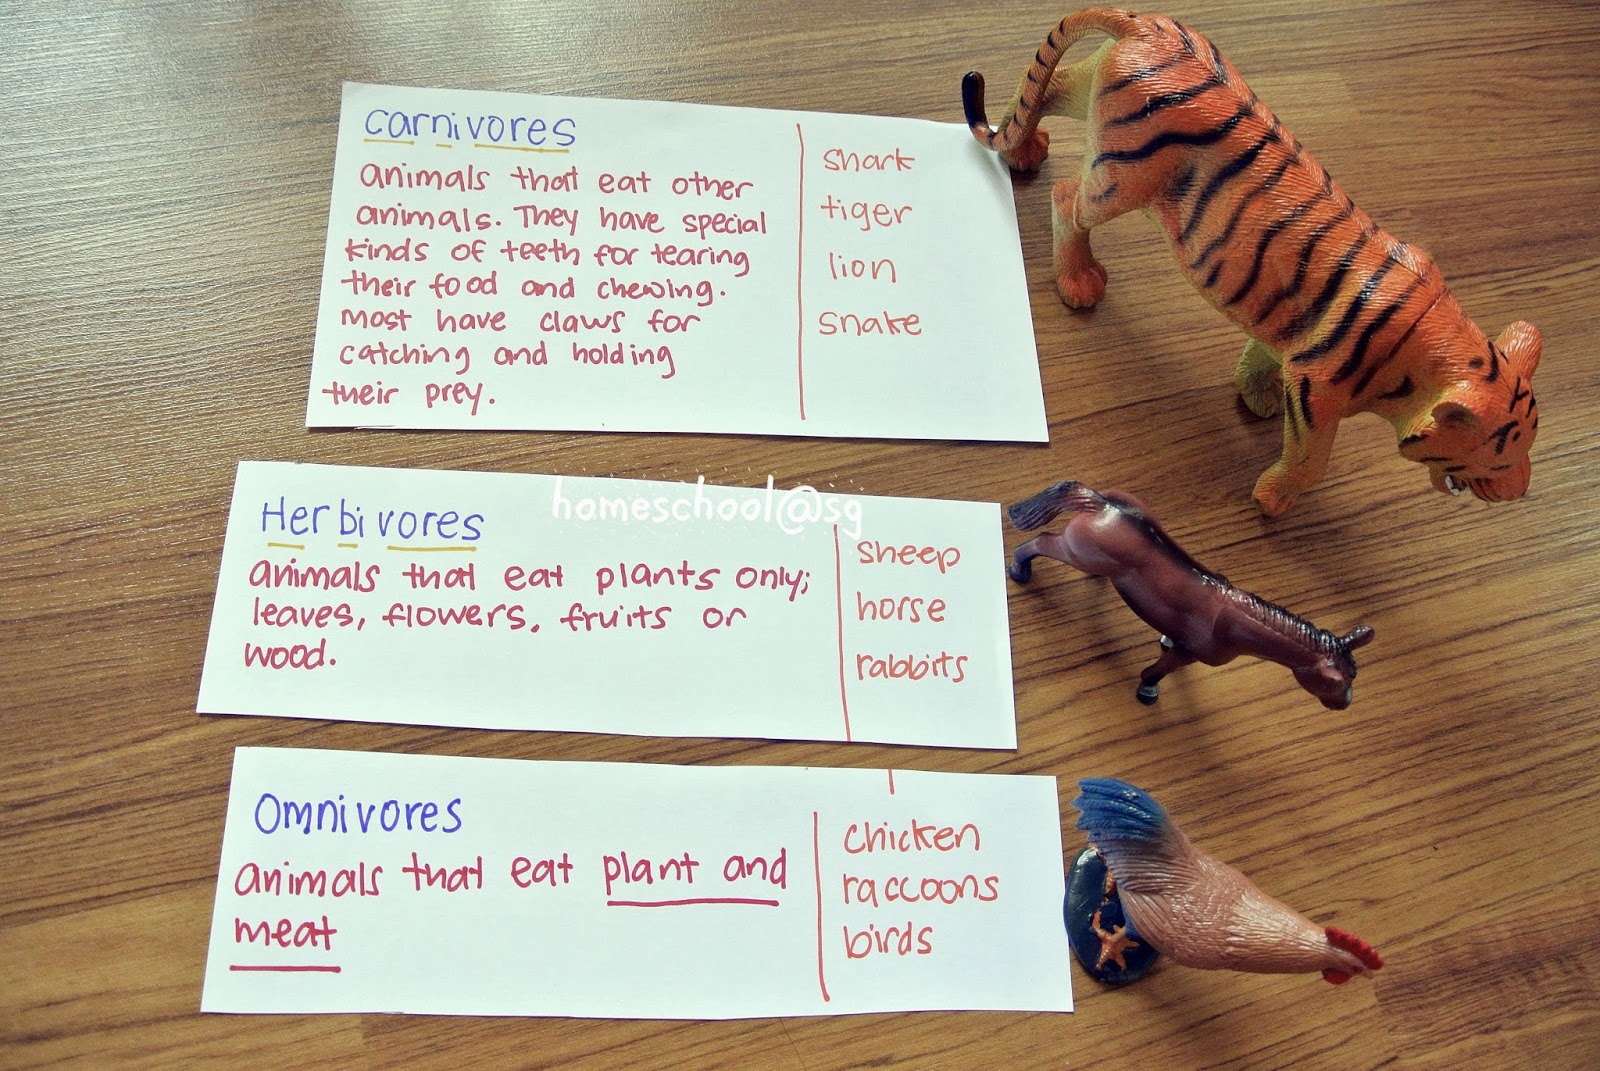 carnivores
animals that eat other
animals. They have special
kinds of teeth for tearing
their food and chewing.
most have claws for
catching and holding
their prey.
shark
tiger
lion
snake
homeschool@sg
Herbivores
animals that eat plants only;
leaves, flowers, fruits or
wood.
sheep
horse
rabbits
Omnivores
animals that eat plant and
meat
chicken
raccoons
birds